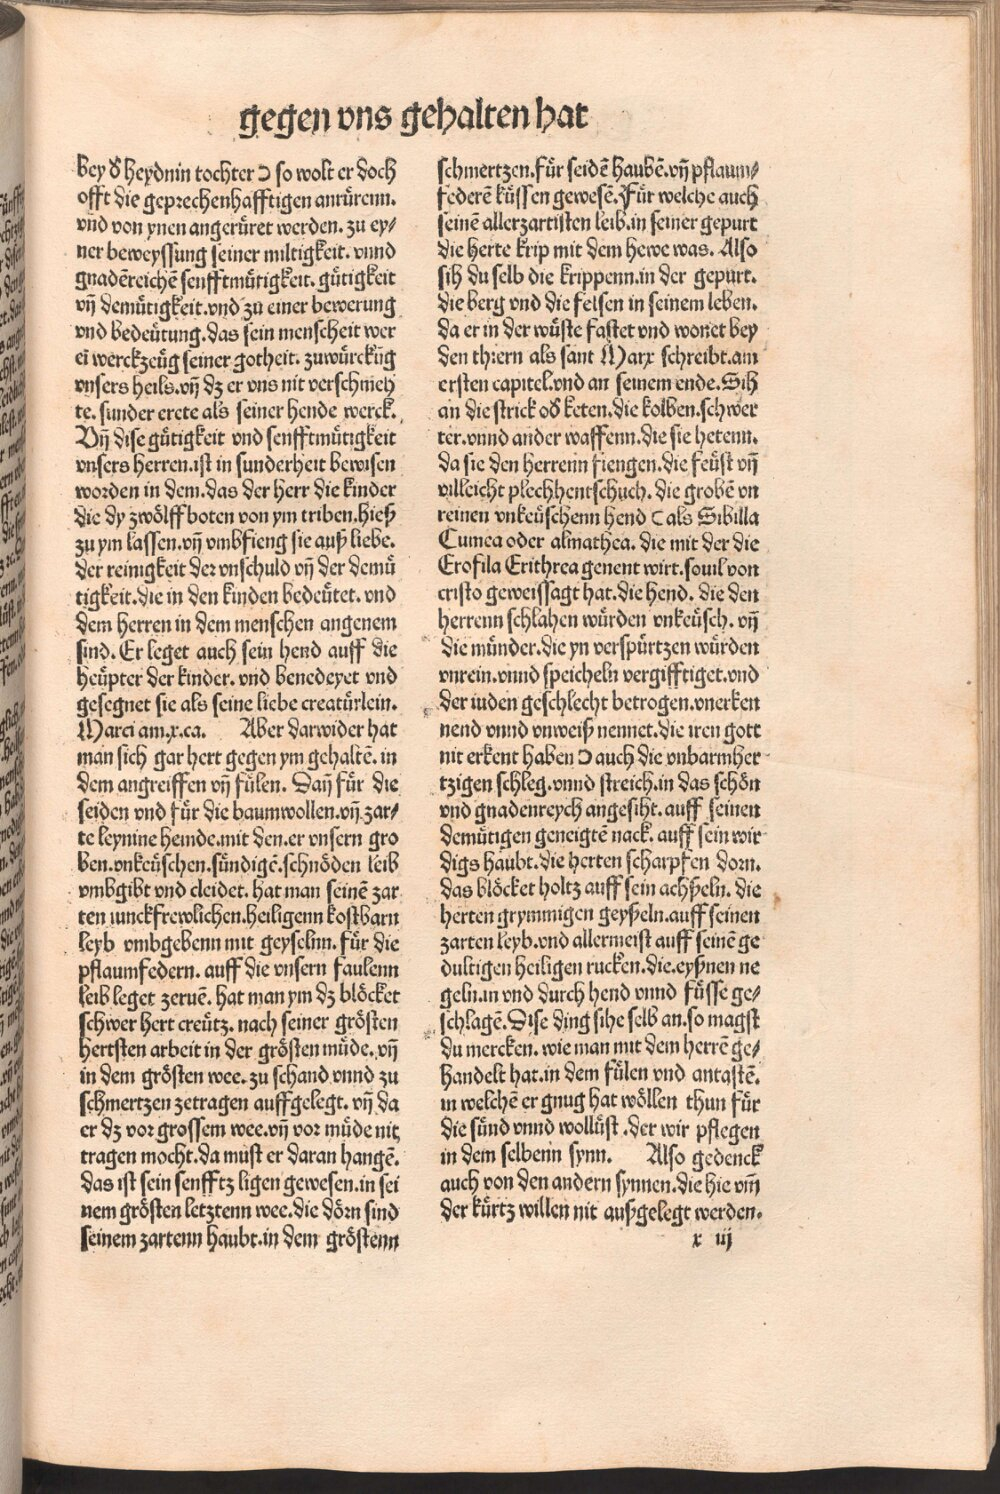 gegen vns gehalten hat
bey d heydnin tochter Ɔ so wolt er doch
offt die geprechenhafftigen anrürenn.
vnd von ynen angerüret werden. zu ey⸗
ner beweyssung seiner miltigkeit. vnnd
gnadēreichē senfftmütigkeit. gütigkeit
vn̄ demütigkeit. vnd zu einer bewerung
vnd bedeütung. das sein menscheit wer
eī werckzeüg seiner gotheit. zuwürckūg
vnsers heils. vn̄ dz er vns nit verschmeh
te. sunder erete als seiner hende werck.
Vn̄ dise gütigkeit vnd senfftmütigkeit
vnsers herren. ist in sunderheit bewisen
worden in dem. das der herr die kinder
die dy zwölffboten von ym triben. hieß
zu ym lassen. vn̄ vmbfieng sie auß liebe.
der reinigkeit der vnschuld vn̄ der demü
tigkeit. die in den kinden bedeütet. vnd
dem herren in dem menschen angenem
sind. Er leget auch sein hend auff die
heüpter der kinder. vnd benedeyet vnd
gesegnet sie als seine liebe creatürlein.
Marci am.x.ca. Aber darwider hat
man sich gar hert gegen ym gehaltē. in
dem angreiffen vn̄ fülen. Dan̄ für die
seiden vnd für die baumwollen. vn̄ zar⸗
te leynine hemde. mit den. er vnsern gro
ben. vnkeüschen. sündigē. schnöden leib
vmbgibt vnd cleidet. hat man seinē zar
ten iunckfrewlichen. heiligenn kostbarn
leyb vmbgebenn mit geyselnn. für die
pflaumfedern. auff die vnsern faulenn
leib leget zeruē. hat man ym dz blöcket
schwer hert creütz. nach seiner grösten
hertsten arbeit in der grösten müde. vn̄
in dem grösten wee. zu schand vnnd zu
schmertzen zetragen auffgelegt. vn̄ da
er dz vor grossem wee. vn̄ vor müde nit
tragen mocht. da müst er daran hangē.
das ist sein senfftz ligen gewesen. in sei
nem grösten letztenn wee. die dörn sind
seinem zartenn haubt. in dem gröstenn
schmertzen. für seidē haubē. vn̄ pflaum⸗
federē küssen gewesē. Für welche auch
seinē allerzartisten leib. in seiner gepurt
die herte krip mit dem hewe was. Also
sih du selb die krippenn. in der gepurt.
die berg vnd die felsen in seinem leben.
da er in der wüste fastet vnd wonet bey
den thiern als sant Marx schreibt. am
ersten capitel. vnd an seinem ende. Sih
an die strick od keten. die kolben. schwer
ter. vnnd ander waffenn. die sie hetenn.
da sie den herrenn fiengen. die feüst vn̄
villeicht plechhentschuch. die grobē vn
reinen vnkeüschenn hend C als Sibilla
Cumea oder almathea. die mit der die
Erofila Erithrea genent wirt. souil von
cristo geweissagt hat. die hend. die den
herrenn schlahen würden vnkeüsch. vn̄
die münder. die yn verspürtzen würden
vnrein. vnnd speicheln vergifftiget. vnd
der iuden geschlecht betrogen. vnerken
nend vnnd vnweiß nennet. die iren gott
nit erkent haben Ɔ auch die vnbarmher
tzigen schleg. vnnd streich. in das schön
vnd gnadenreych angesiht. auff seinen
demütigen geneigtē nack. auff sein wir
digs haubt. die herten scharpfen dorn.
das blöcket holtz auff sein achßeln. die
herten grymmigen geyßeln. auff seinen
zarten leyb. vnd allermeist auff seinē ge
dultigen heiligen rucken. die. eyßnen ne
geln. in vnd durch hend vnnd füsse ge⸗
schlagē. Dise ding sihe selb an. so magst
du mercken. wie man mit dem herrē ge⸗
handelt hat. in dem fülen vnd antastē.
in welchē er gnug hat wöllen thun für
die sünd vnnd wollüst. der wir pflegen
in dem selbenn synn. Also gedenck
auch von den andern synnen. die hie vm̄
der kürtz willen nit außgelegt werden.
x iij